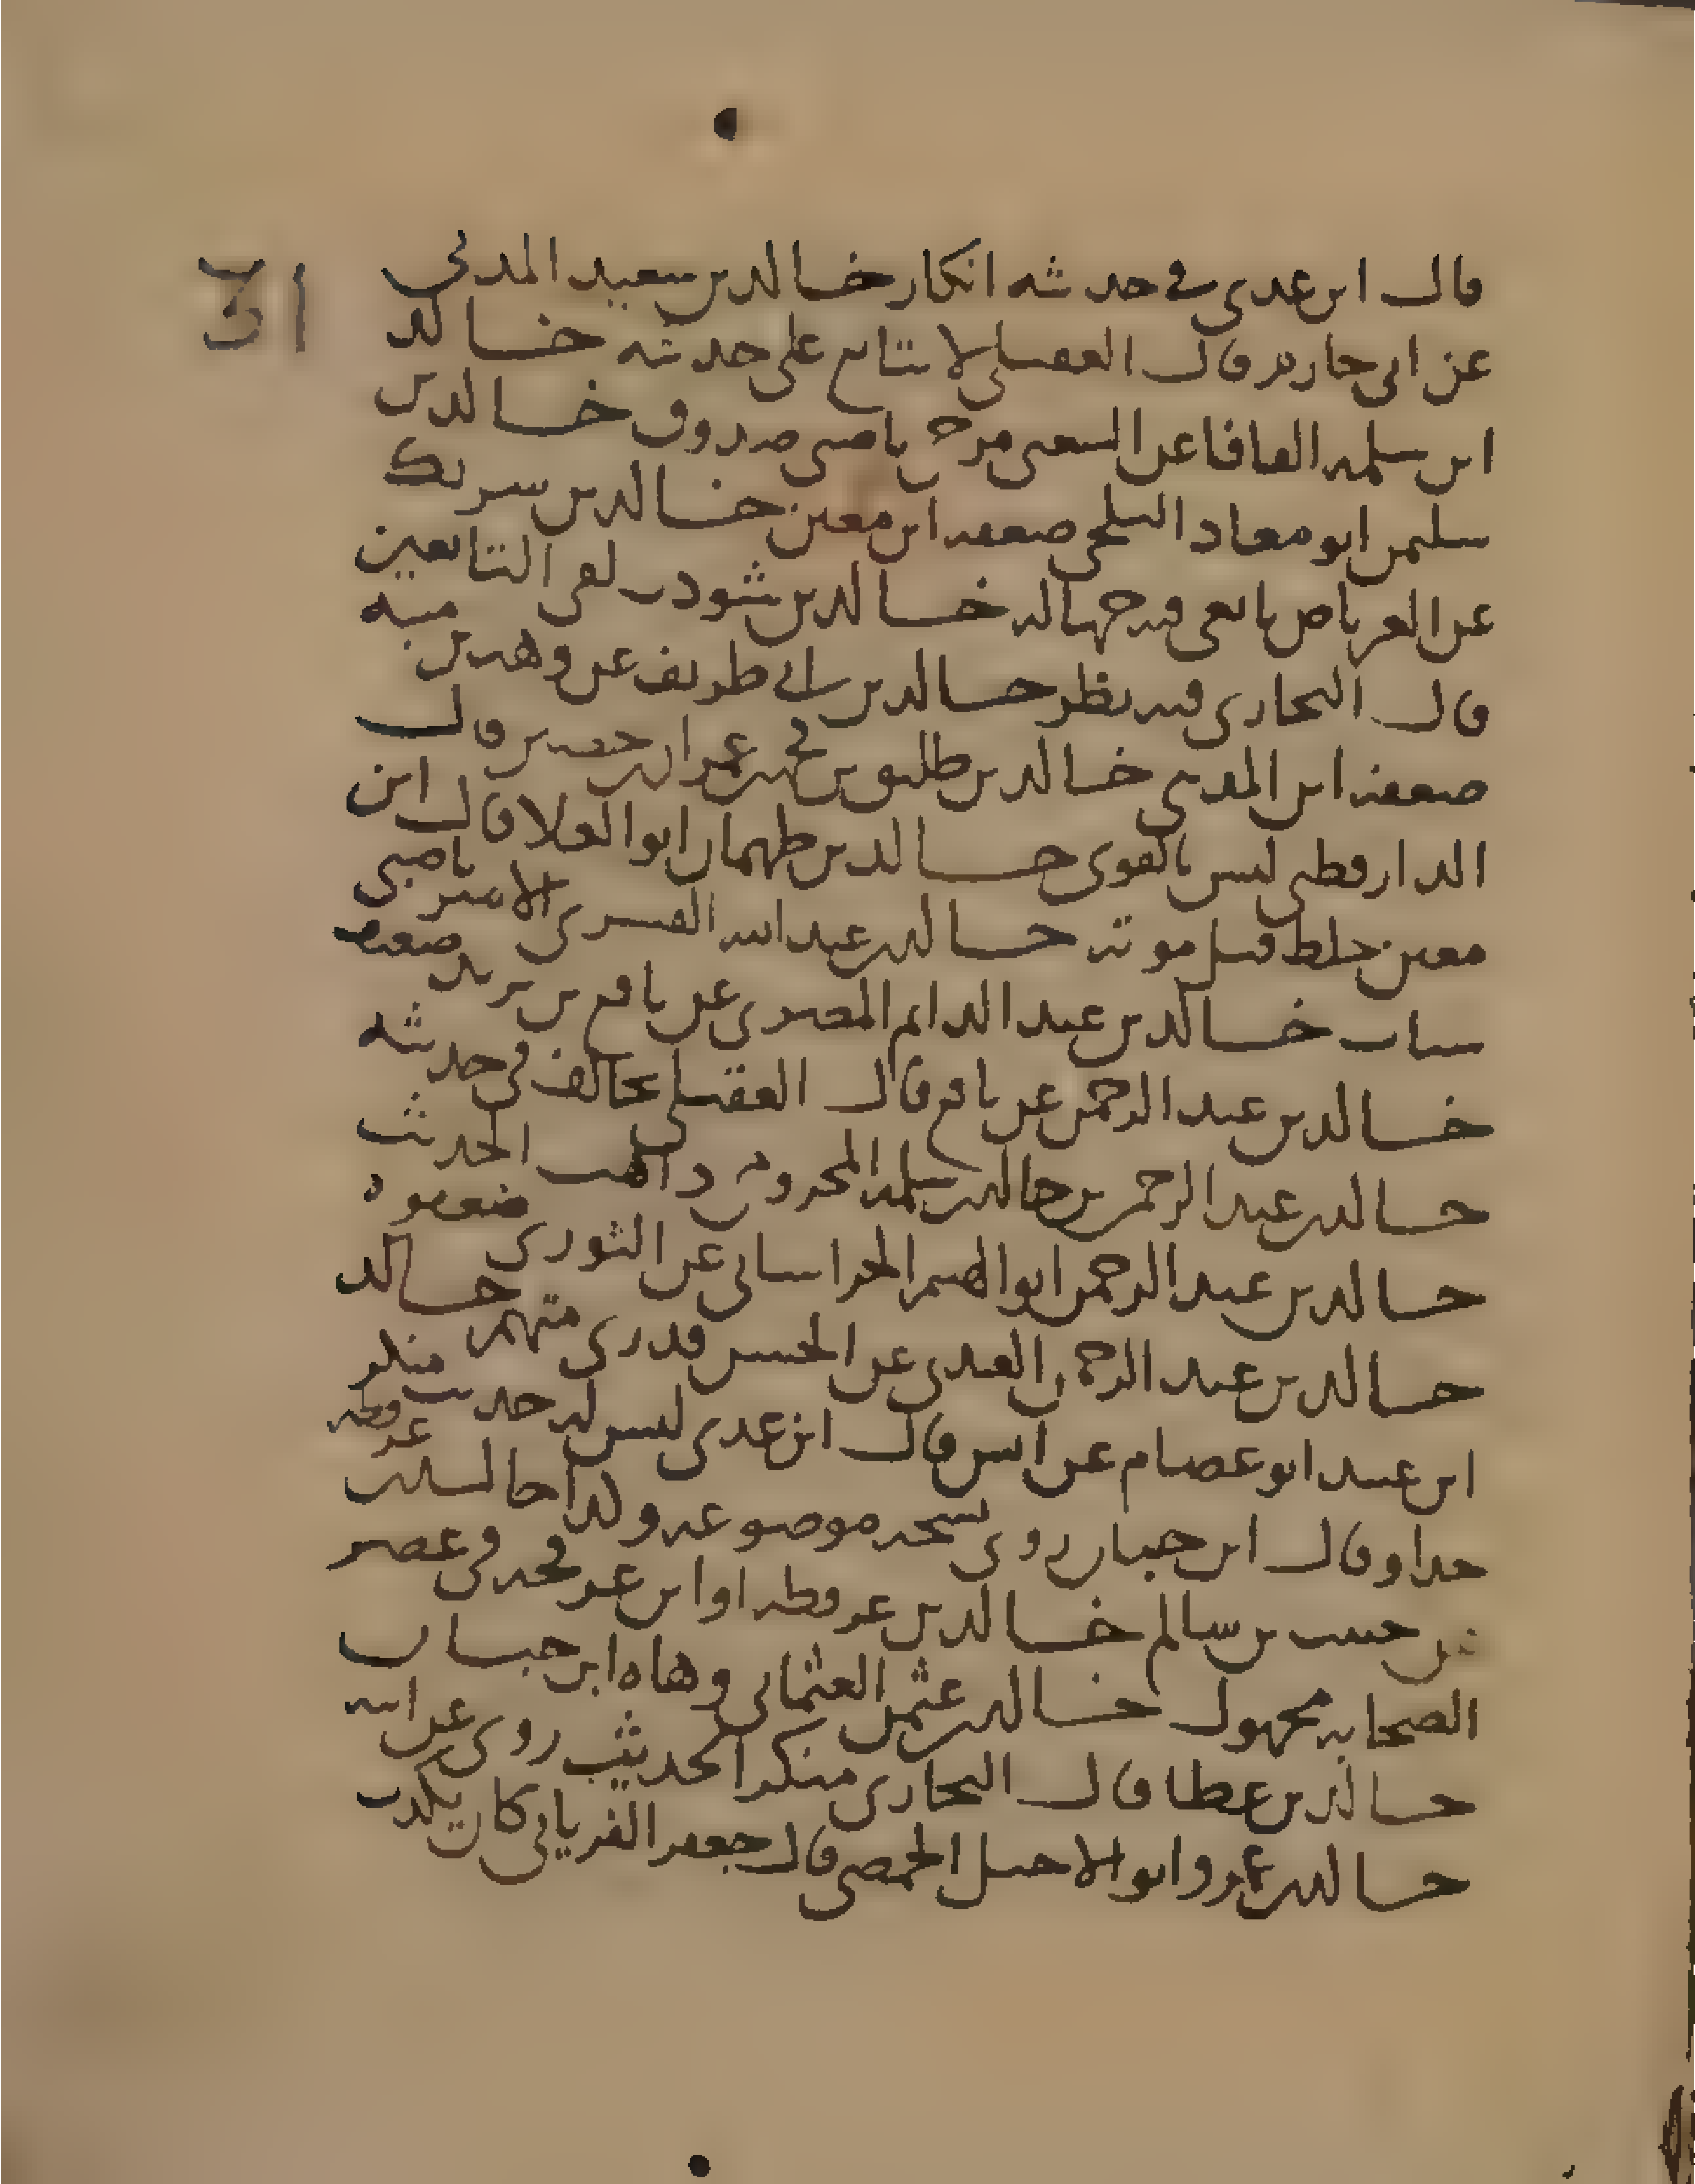 قال ابن عدي في حديثه انكار خالد بن سعيد المدني
عن ابي حازم قال العقيلي لا يتابع على حديثه خالد
ابن سلمه الفافا عن الشعبي مرجي ناصبي صدوق خالد بن
سليمن ابو معاذ البلخي ضعفه ابن معين خالد بن شريك
عن العرباض تابعي فيه جهاله خالد بن شوذب لقي التابعين
قال البخاري فيه نظر خالد بن ابي طريف عن وهب بن منبه
ضعفه ابن المديني خالد بن طليق بن محمد بن عمران بن حصين قال
الدارقطني ليس بالقوي خالد بن طهمان ابو العلا قال ابن
معين خلط قبل موته خالد بن عبد الله القسري الامير ناصبي
سباب خالد بن عبد الدايم المصري عن نافع بن يزيد ضعيف
خالد بن عبد الرحمن عن نافع قال العقيلي يخالف في حديثه
خالد بن عبد الرحمن بن خالد بن سلمه المخزومي ذاهب الحديث
خالد بن عبد الرحمن ابو الهيثم الخراساني عن الثوري ضعفوه
خالد بن عبد الرحمن العبدي عن الحسن قدري متهم خالد
ابن عبيد ابو عصام عن انس قال ابن عدي ليس له حديث منكر
جدا وقال ابن حبان روى نسخه موضوعه ولها خالد بن عرفطه
عن حبيب بن سالم خالد بن عرفطه او ابن عرفجه في عصر
الصحابه مجهول خالد بن عثمن العثماني وهاه ابن حبان
خالد بن عطا قال البخاري منكر الحديث روى عن ابيه
خالد بن عمرو ابو الاخيل الحمصي قال جعفر الفريابي كان يكذب